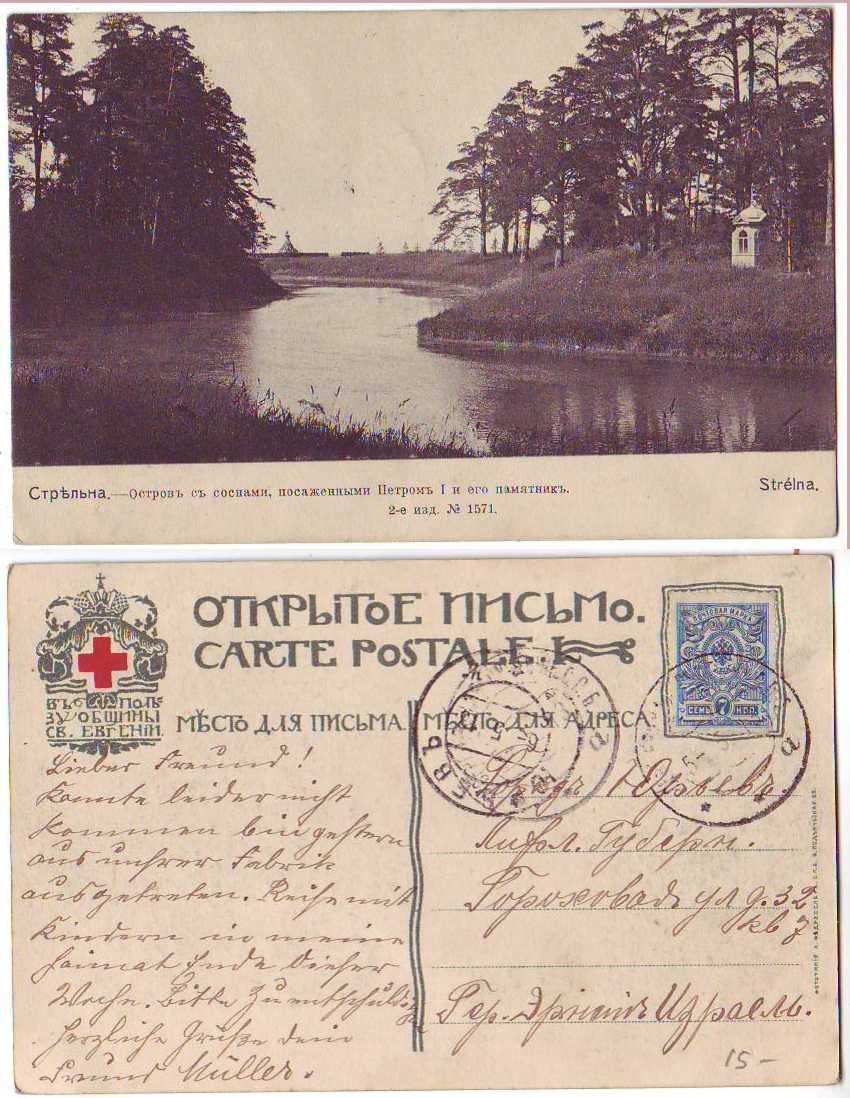 Стрѣльна.—Островъ съ соснами, посаженными Петромъ I и его памятникъ.
Strélna.
2-е изд. № 1571.
ОТКРЫТОЕ ПИСЬМО.
CARTE POSTALE
ВЪ ПОЛЬ
ЗУ ОБЩИНЫ
СВ. ЕВГЕНIИ.
МѢСТО ДЛЯ ПИСЬМА.
МѢСТО ДЛЯ АДРЕСА.
ПОЧТОВАЯ МАРКА
СЕМЬ 7 КОП.
Lieber Freund!
Konnte leider nicht
kommen bin gestern
aus unsrer Fabrik
ausgetreten. Reise mit
Kindern in meine
Heimat Ende dieser
Woche. Bitte zu entschuldi
Herzliche Grüße dein
Freund Müller.
Городъ Юрьевъ.
Лифл. Губерн.
Гороховая ул д. 32
кв 7
Гер. Израель.
15-